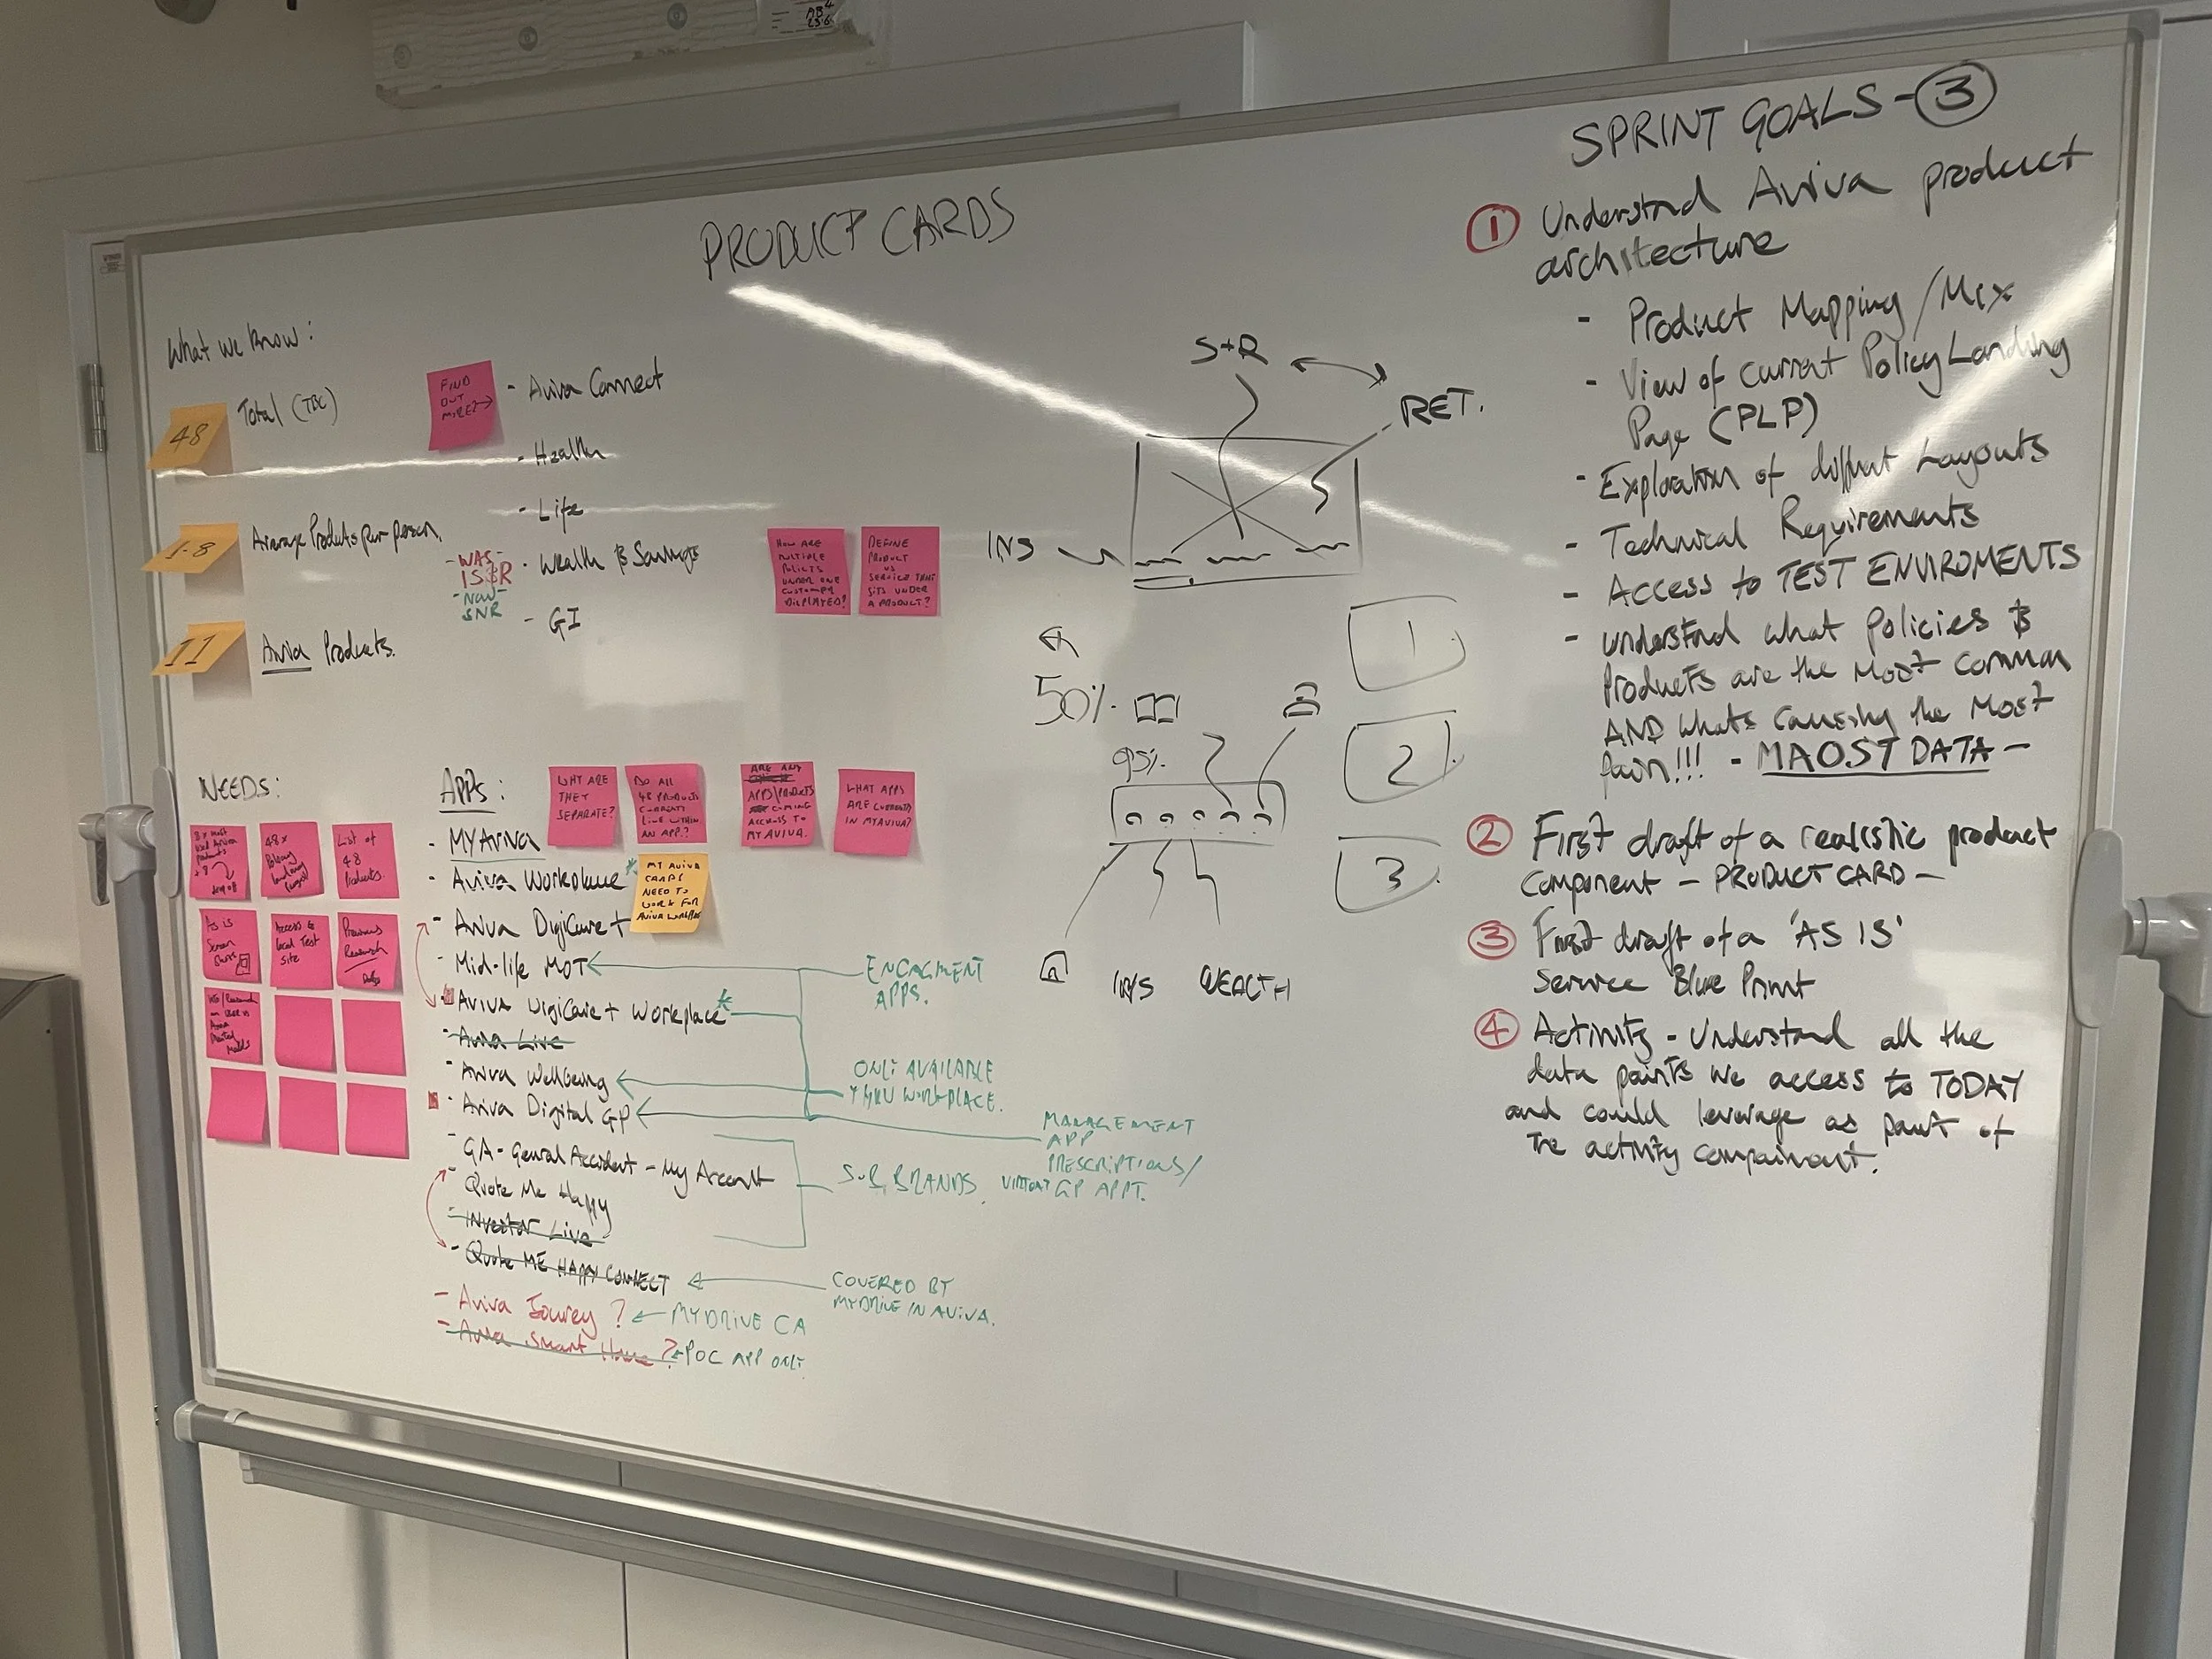 PRODUCT CARDS
What we know:
48
Total (TBC)
1-8
Average Products per person.
11
Aviva Products.
FIND
OUT
MORE?
- Aviva Connect
- Health
- Life
- Wealth & Savings
- GI
- WAS -
IS&R
- NOW -
SNR
HOW ARE
MULTIPLE
POLICIES
UNDER ONE
CUSTOMER
DISPLAYED?
DEFINE
PRODUCT
VS
SERVICE THAT
SITS UNDER
A PRODUCT?
S+R
RET.
INS
50%
95%
1
2
3
INS
WEALTH
NEEDS:
48x
Policy
List of
48
Products.
As is
Screen
Access to
local Test
Site
Previous
Research
APPs:
WHY ARE
THEY
SEPARATE?
DO ALL
48 PRODUCTS
CURRENTLY
LIVE WITHIN
AN APP?
ARE ANY
APPS/PRODUCTS
COMING
ACCROSS TO
MY AVIVA.
WHAT APPS
ARE CURRENTLY
IN MYAVIVA?
MY AVIVA
CARDS
NEED TO
WORK FOR
AVIVA WORKPLACE
- MYAviva
- Aviva Workplace *
- Aviva DigiCare +
- Mid-life MOT
- Aviva DigiCare + Workplace *
- Aviva Live
- Aviva Wellbeing
- Aviva Digital GP
- GA - General Accident - My Account
- Quote Me Happy
- Investor Live
- Quote ME HAPPY CONNECT
- Aviva Jourey ?
- Aviva Smart Home ?
ENGAGMENT
APPS.
ONLY AVAILABLE
THRU WORKPLACE.
MANAGEMENT
APP
PRESCRIPTIONS/
GP APPT.
SUB BRANDS.
COVERED BY
MYDRIVE IN AVIVA.
MYDRIVE CA
POC APP ONLY
SPRINT GOALS - 3
1 Understand Aviva product
architecture
- Product Mapping / Mix
- View of current Policy Landing
Page (PLP)
- Exploration of diffrent Layouts
- Technical Requirements
- Access to TEST ENVIROMENTS
- understand what Policies &
Products are the Most Common
AND whats causing the Most
Pain!!! - MAOST DATA -
2 First draft of a realistic product
Component - PRODUCT CARD -
3 First draft of a 'AS IS'
Service Blue Print
4 Activity - Understand all the
data points we access to TODAY
and could leverage as part of
the activity compainont.